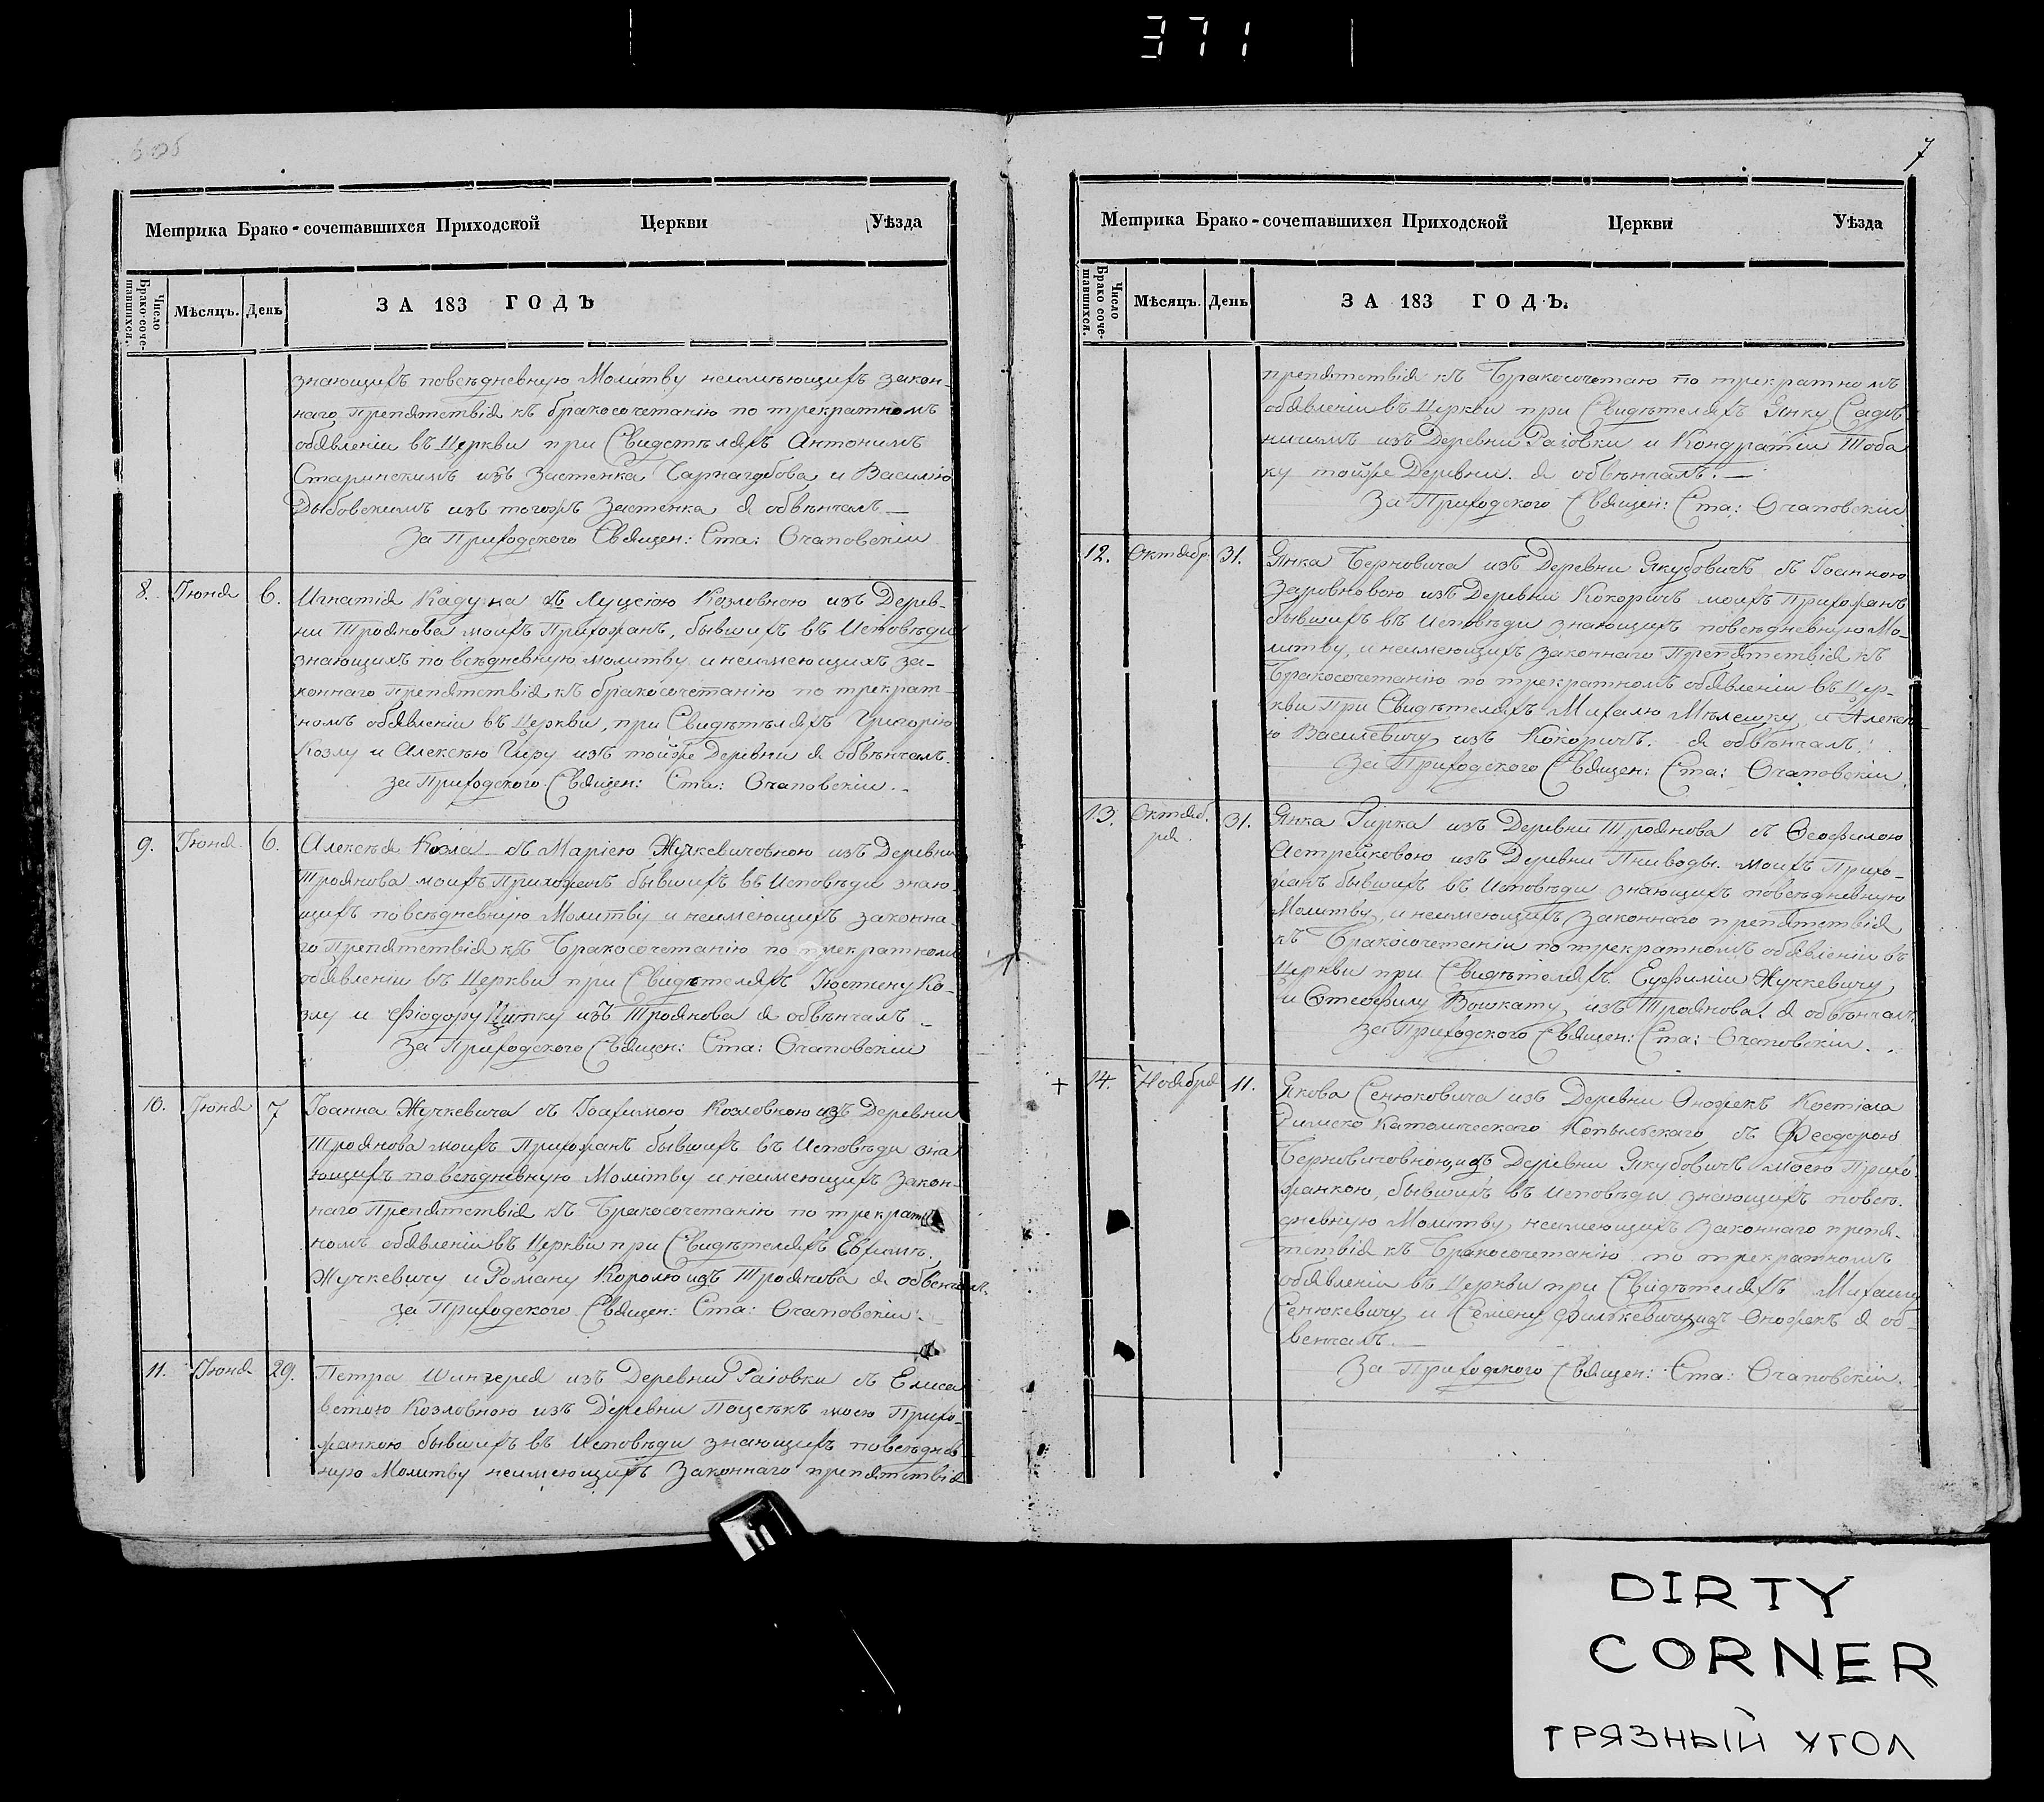 371
505
Метрика Брако-сочетавшихся Приходской Церкви Уѣзда
Число Брако-соче-тавшихся.
Мѣсяцъ.
День
ЗА 183 ГОДЪ
знающихъ повсѣдневную Молитву неимѣющихъ закон-
наго Препятствія къ бракосочетанію по трекратномъ
обявленіи въ Церкви при Свидетѣляхъ Антонимъ
Старинскимъ изъ Застенка и Василію
Дыбовскимъ изъ тогожъ Застенка я обвѣнчалъ —
За Приходского Священ: Ста: Очаповскій
8. Іюня 6. Игнатія Кадуна съ Луцеіою Козловною изъ Дерев-
ни Троянова моихъ Прихожанъ, бывшихъ въ Исповѣди
знающихъ повсѣдневную молитву и неимеющихъ за-
коннаго Препятствія къ бракосочетанію по трекрат-
номъ обявленіи въ Церкви, при Свидѣтѣляхъ Григорію
Козлу и Алексѣю Гиру изъ тойже Деревни я обвѣнчалъ.
за Приходского Священ: Ста: Очаповскій.
9. Іюня 6. Алексѣя Козла съ Маріею Жучкевичовною изъ Деревни
Троянова моихъ Прихожанъ бывшихъ въ Исповѣди знаю-
щихъ повсѣдневную Молитву и неимеющихъ законна-
го Препятствія къ Бракосочетанію по трекратномъ
обявленіи въ Церкви при Свидетеляхъ Іюстину Ко-
злу и Фіодору Цитку изъ Троянова я обвѣнчалъ.
За Приходского Священ: Ста: Очаповскій
10. Іюня 7 Іоанна Жучкевича съ Іоахимою Козловною изъ Деревни
Троянова моихъ Прихожанъ бывшихъ въ Исповѣди зна
ющихъ повсѣдневную Молитву и неимеющихъ закон-
наго Препятствія къ Бракосочетанію по трекрат
номъ обявленіи въ Церкви при Свидѣтеляхъ Ефимъ
Жучкевичу и Роману Королю изъ Троянова я обвенчалъ.
за Приходского Священ: Ста: Очаповскій.
11. Іюня 29. Петра Шингерея изъ Деревни Раіовки съ Елиса
ветою Козловною изъ Деревни Пацеѣкъ моею Прихо-
жанкою бывшихъ въ Исповѣди знающихъ повсѣднев
ную Молитву неимеющихъ Законнаго препятствія
7
Метрика Брако-сочетавшихся Приходской Церкви Уѣзда
Число Брако соче-тавшихся.
Мѣсяцъ.
День
ЗА 183 ГОДЪ.
препятствія къ Бракосочетаю по трекратномъ
обявленіи въ Церкви при Свидѣтеляхъ Янку Садов
ничимъ изъ Деревни Раіовки и Кондратіи Тоба
ку тойже Деревни. я обвѣнчалъ. —
За Приходского Священ: Ста: Очаповскій
12. Октябр. 31. Янка Берновича изъ Деревни Якубовичъ съ Іоанною
Заровновою изъ Деревни Кокоричъ моихъ Прихожанъ
бывшихъ въ Исповѣди знающихъ повсѣдневную Мо-
литву, и неимеющихъ законнаго Препятствія къ
Бракосочетанію по трекратномъ обявленіи въ Цер-
кви При Свидѣтеляхъ Михалю Мѣлешку, и Алексѣ
ю Василевичу изъ Кокоричъ. я обвѣнчалъ.
За Приходского Священ: Ста: Очаповскій.
13. Октяб. ря. 31. Янка Гирка изъ Деревни Троянова съ Ѳеофилою
Астрейковою изъ Деревни Пниводы. моихъ Прихо-
жанъ бывшихъ въ Исповѣди знающихъ повсѣдневную
Молитву, и неимеющихъ Законнаго препятствія
къ Бракосочетаніи по трекратномъ обявленіи въ
Церкви при Свидѣтеляхъ Еуфиміи Жучкевичу
и Вошкату изъ Троянова. я обвѣнчалъ.
За Приходского Священ: Ста: Очаповскій.
+ 14. Ноября 11. Якова Сенюковича изъ Деревни Оножекъ Костіола
Римско Католическаго Копыльскаго съ Феодорою
Берновичовною изъ Деревни Якубовичъ моею Прихо-
жанкою, бывшихъ въ Исповѣди знающихъ повсѣ-
дневную Молитву неимеющихъ Законнаго препя-
тствія къ Бракосочетанію по трекратномъ
обявленіи въ Церкви при Свидѣтеляхъ Михаилу
Сенюкевичу и Семену Филькевичу изъ Оножекъ я об-
венчалъ.
За Приходского Священ: Ста: Очаповскій.
DIRTY
CORNER
ГРЯЗНЫЙ УГОЛ